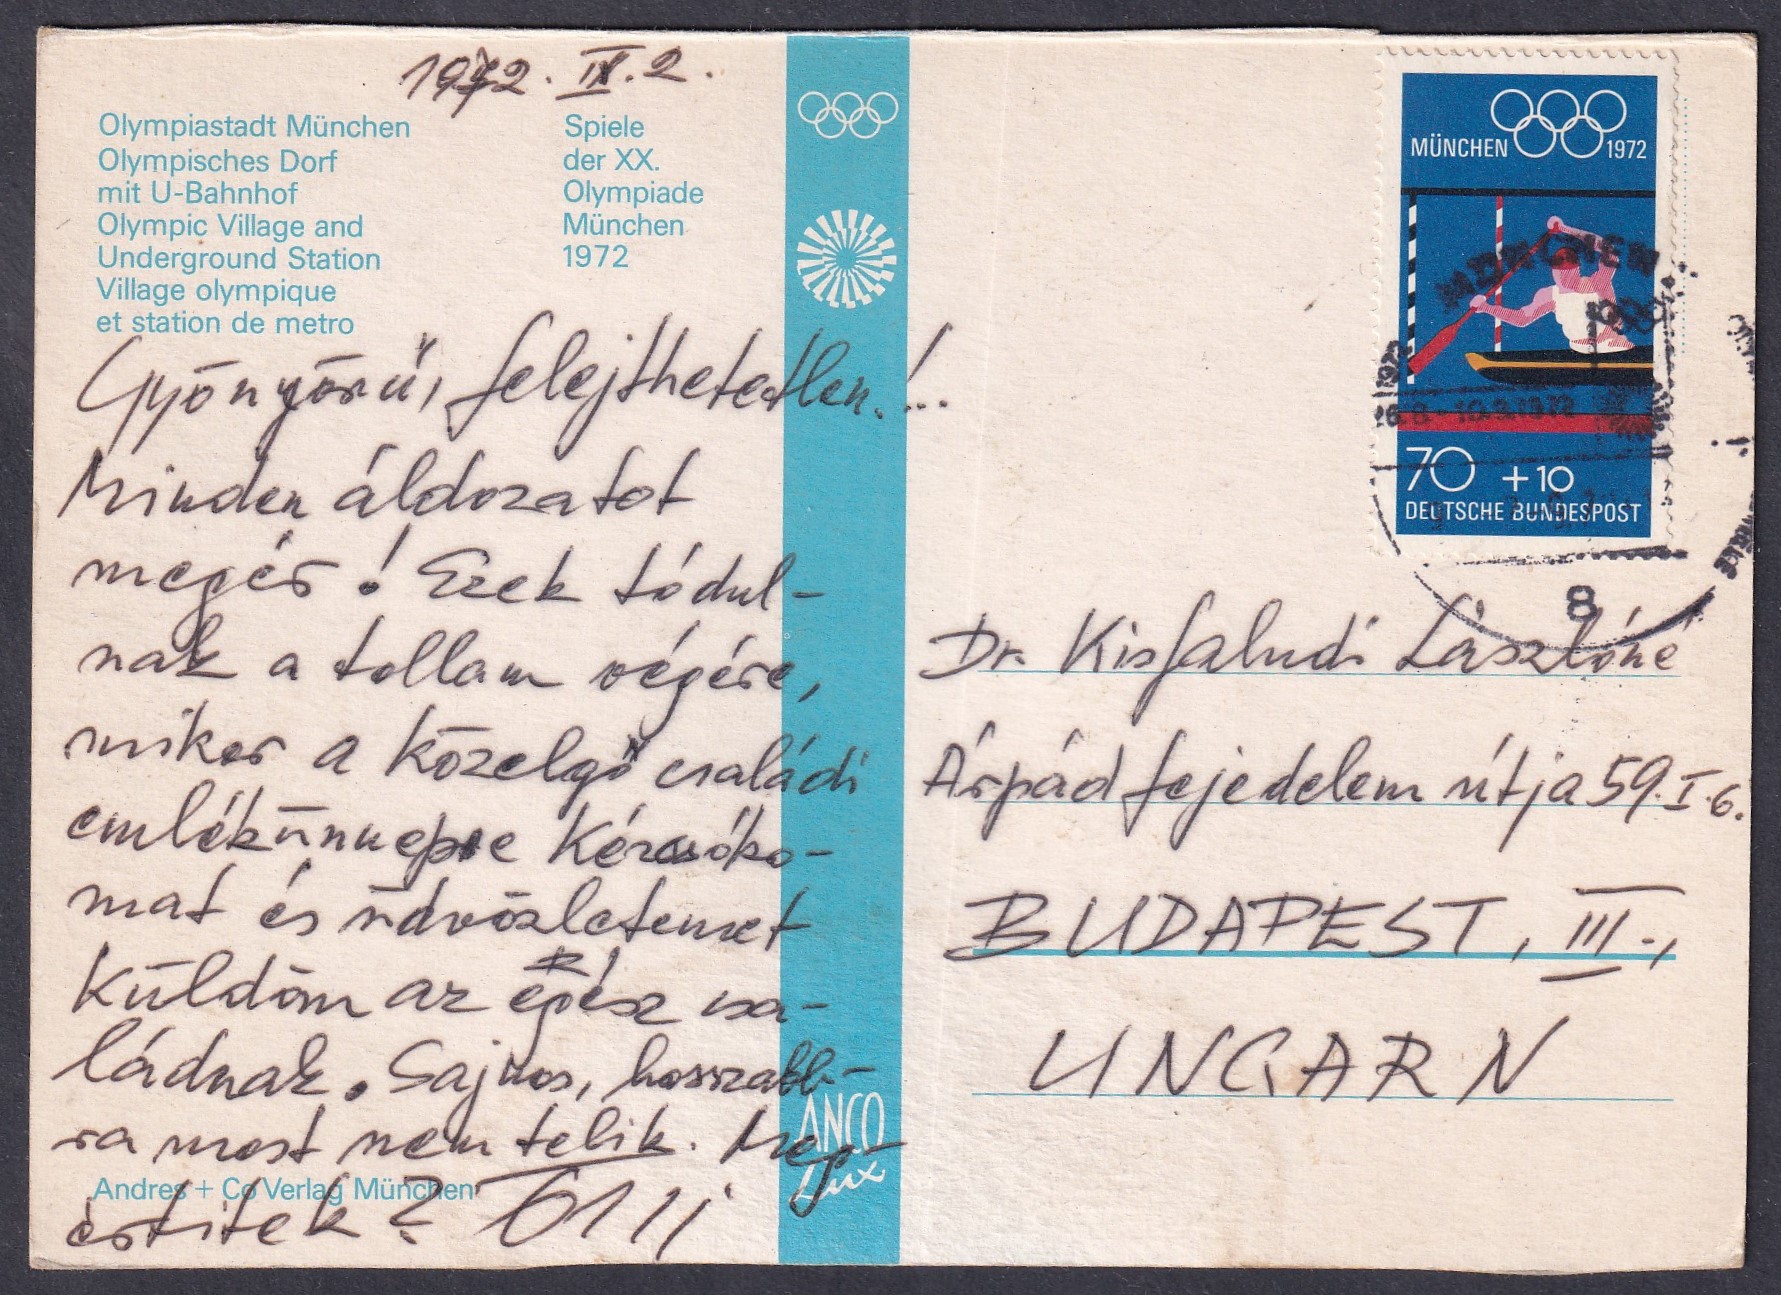 1972. IX. 2.
Olympiastadt München
Olympisches Dorf
mit U-Bahnhof
Olympic Village and
Underground Station
Village olympique
et station de metro
Spiele
der XX.
Olympiade
München
1972
Gyönyörű, felejthetetlen!...
Minden áldozatot
megér! Ezek tódul-
nak a tollam végére,
mikor a közelgő családi
emlékünnepre kézcsóko-
mat és üdvözletemet
küldöm az egész csa-
ládnak. Sajnos, hosszabb-
ra most nem telik. Meg-
értitek?
Andres + Co Verlag München
ANCO
Lux
MÜNCHEN 1972
70 + 10
DEUTSCHE BUNDESPOST
MÜNCHEN
1972
26.8.-10.9.1972
8
Dr. Kisfaludi Lászlóné
Árpád fejedelem útja 59. I. 6.
BUDAPEST, III.,
UNGARN